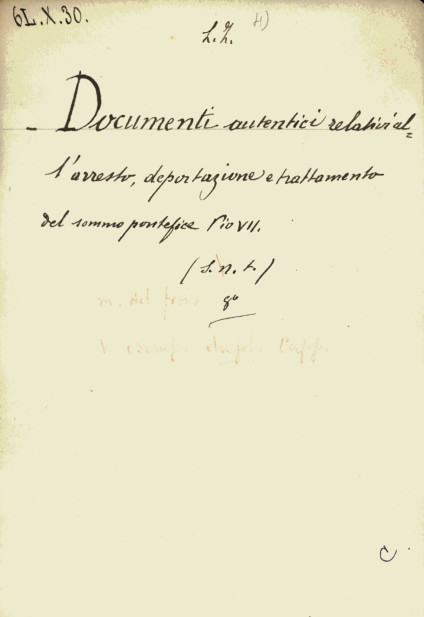 6L.X.30.
L.Z. 4)
- Documenti autentici relativi al=
l'arresto, deportazione e trattamento
del sommo pontefice Pio VII.
(s. n. t.)
8º
m. del
V.
C